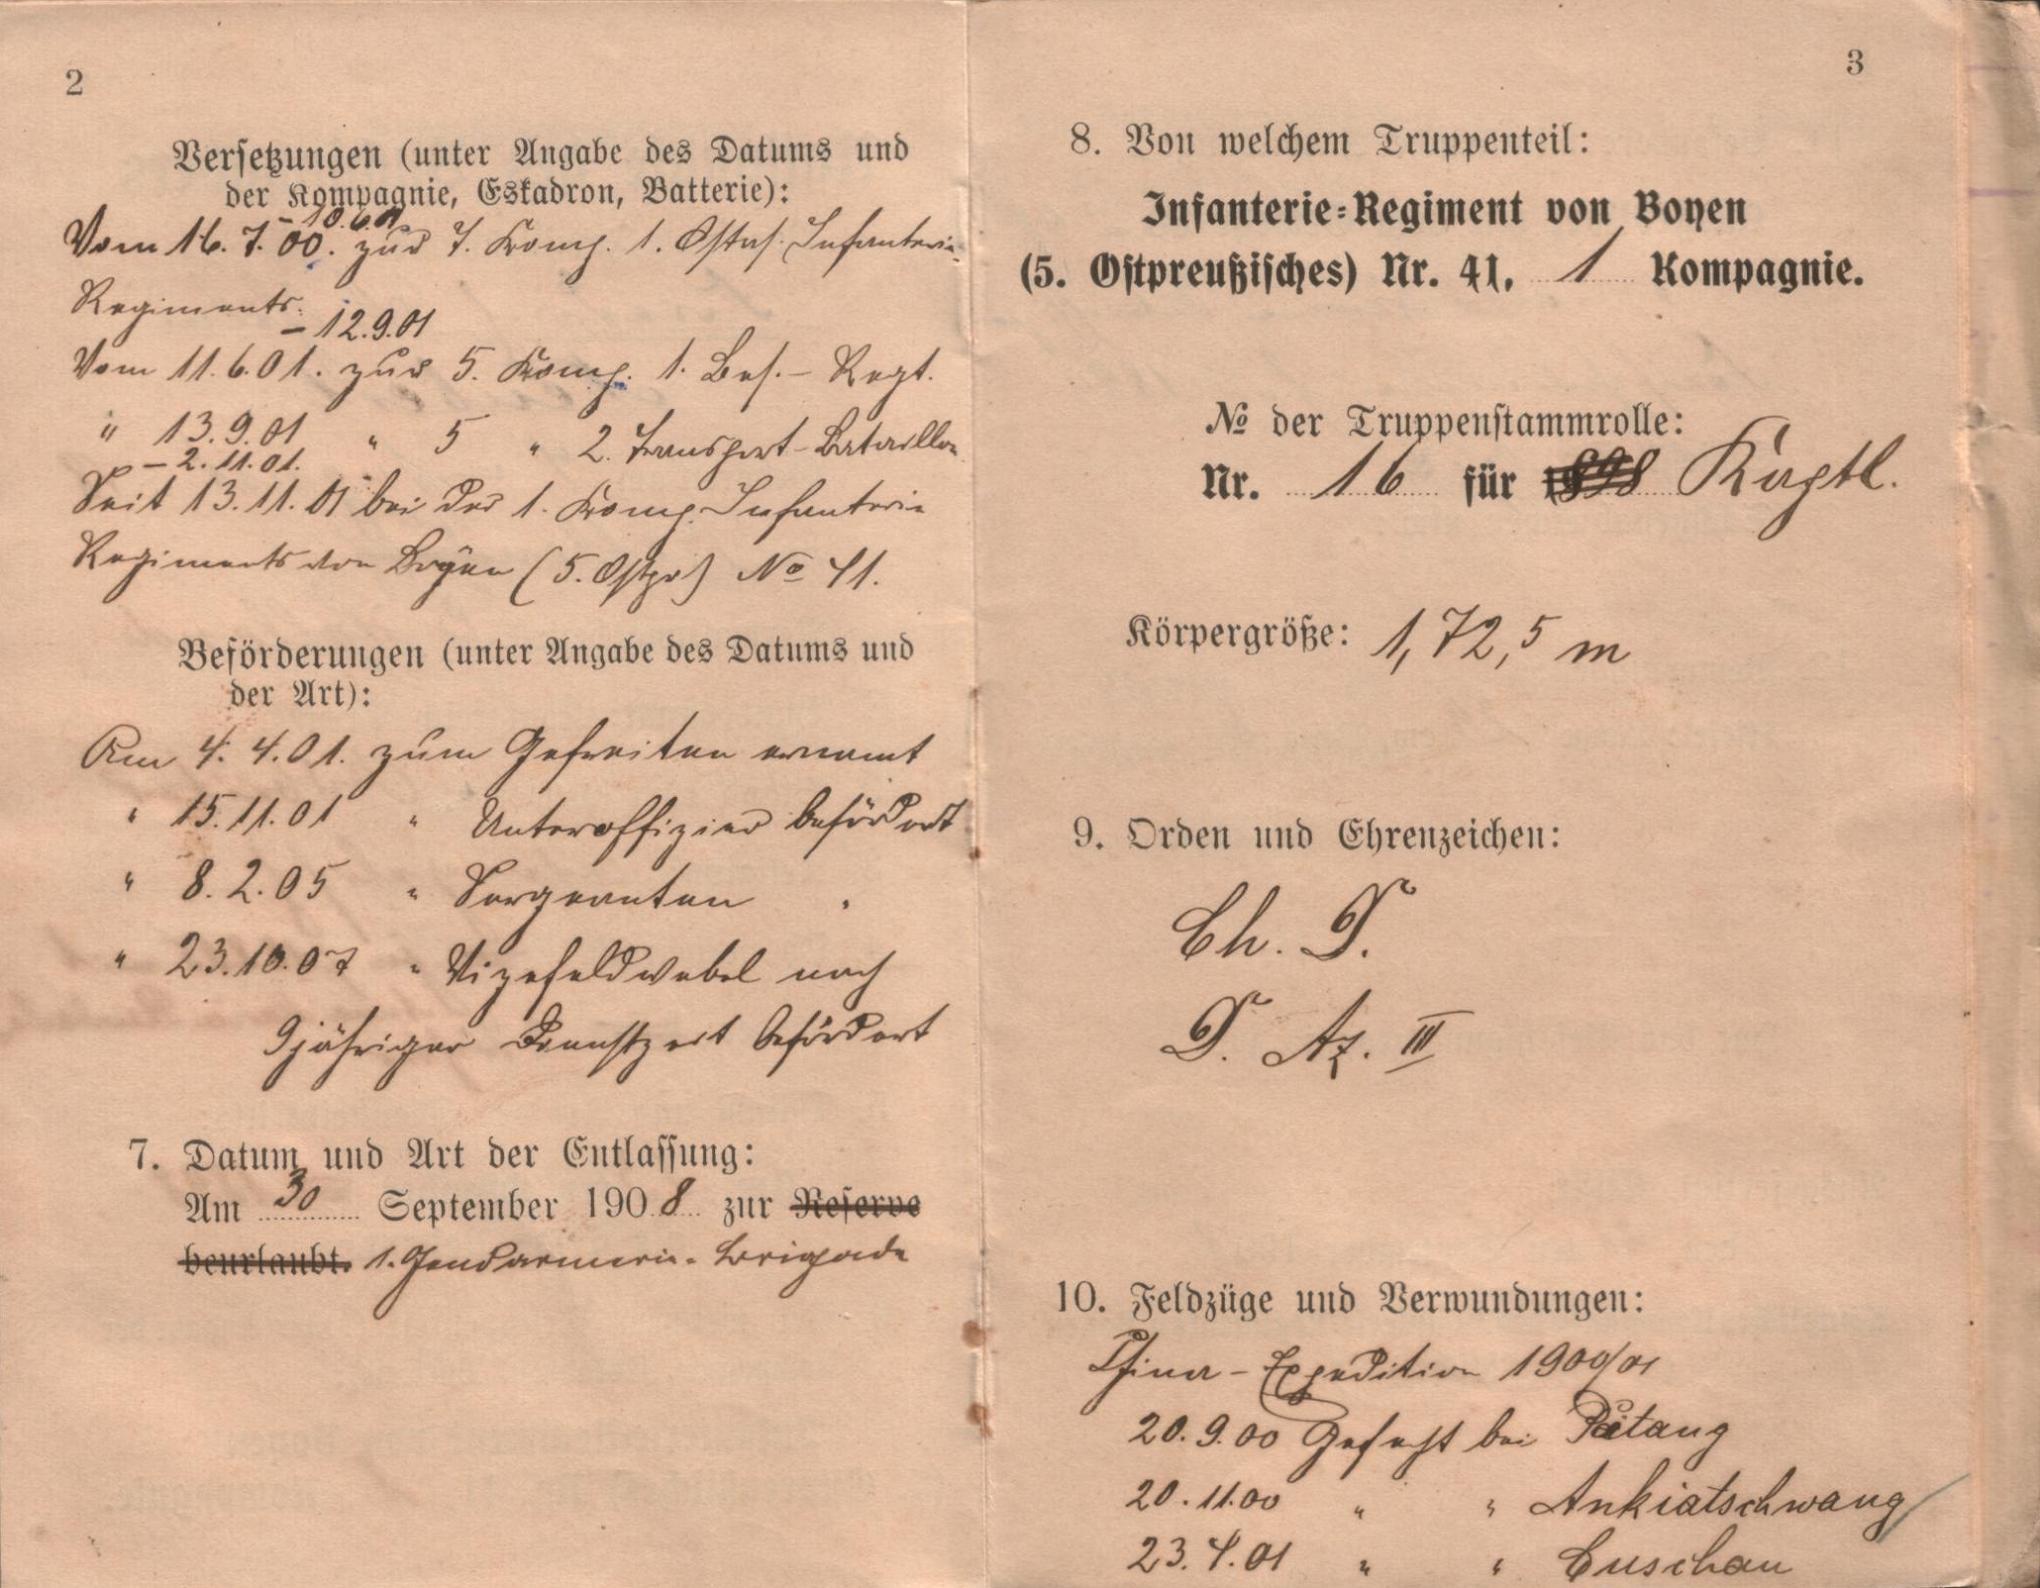 2
Versetzungen (unter Angabe des Datums und
der Kompagnie, Eskadron, Batterie):
- 10.6.01
Vom 16. 7. 00. zur 7. Komp. 1. Ostas. Infanterie-
Regiments.
- 12.9.01
Vom 11. 6. 01. zur 5. Komp. 1. Bes. - Regt.
" 13. 9. 01 " 5 " 2. Transport-Bataillon
- 2. 11. 01.
Seit 13. 11. 01 bei der 1. Komp. Infanterie
Regiments von Boyen (5. Ostpr) No 41.
Beförderungen (unter Angabe des Datums und
der Art):
Am 4. 4. 01. zum Gefreiten ernannt
" 15. 11. 01 " Unteroffizier befördert
" 8. 2. 05 " Sergeanten "
" 23. 10. 07 " Vizefeldwebel nach
9jähriger Dienstzeit befördert
7. Datum und Art der Entlassung:
Am 30 September 1908 zur Reserve
beurlaubt. 1. Gendarmerie-Brigade
3
8. Von welchem Truppenteil:
Infanterie-Regiment von Boyen
(5. Ostpreußisches) Nr. 41, 1 Kompagnie.
No der Truppenstammrolle:
Nr. 16 für 1898 Kaptl.
Körpergröße: 1,72,5 m
9. Orden und Ehrenzeichen:
Ch. D.
D. Az. III
10. Feldzüge und Verwundungen:
China - Expedition 1900/01
20. 9. 00 Gefecht bei Peitang
20. 11. 00 " " Ankiatschwang
23. 4. 01 " " Cuschan